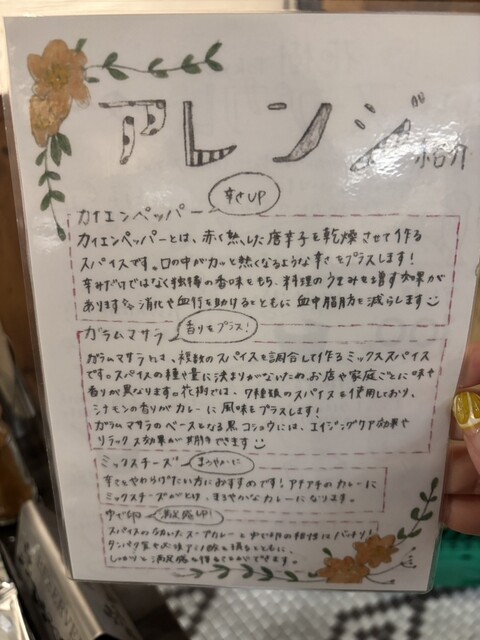 アレンジ
紹介
辛さUP
カイエンペッパー
カイエンペッパーとは、赤く熟した唐辛子を乾燥させて作る
スパイスです。口の中がカッと熱くなるような辛さをプラスします!
辛みだけではなく独特の香味をもち、料理のうまみを増す効果が
あります。消化や血行を助けるとともに血中脂肪を減らします
ガラムマサラ
香りをプラス!
ガラムマサラとは、複数のスパイスを調合して作るミックススパイス
です。スパイスの種や量に決まりがないため、お店や家庭ごとに味や
香りが異なります。花樹では、7種類のスパイスを使用しており、
シナモンの香りがカレーに風味をプラスします!
ガラムマサラのベースとなる黒コショウには、エイジングケア効果や
リラックス効果が期待できます
ミックスチーズ
まろやかに
辛さをやわらげたい方におすすめです!アチアチのカレーに
ミックスチーズがとけ、まろやかなカレーになります。
ゆで卵
満足感UP!
スパイスのきいたスープカレーとゆで卵の相性はバッチリ!
タンパク質や必須アミノ酸を摂るとともに、
しっかりと満足感を得ることができます。